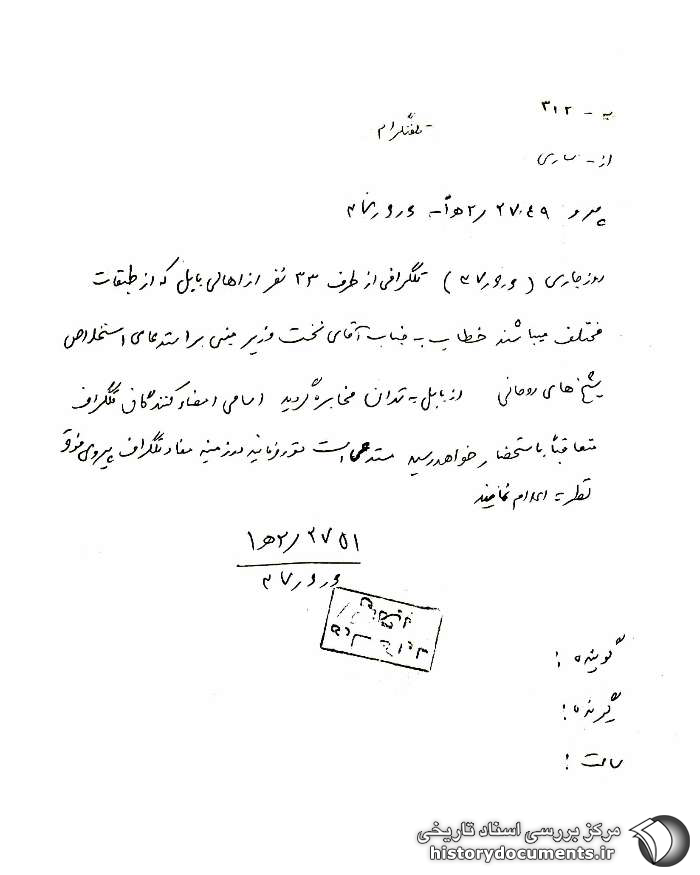 به - ۳۱۲
تلفنگرام
از - ساری
پیرو ۲۷۰۴۹
روز جاری تلگرافی از طرف ۳۳ نفر از اهالی بابل که از طبقات
مختلف میباشند خطاب به جناب آقای نخست وزیر مبنی بر استدعای استخلاص
شیخ های روحانی از بابل به تهران مخابره گردید اسامی امضاء کنندگان تلگراف
متعاقباً باستحضار خواهد رسید مستدعی است دستور فرمایند در زمینه مفاد تلگراف پیروی فوق
نظریه اعلام نمایند
گوینده :
گیرنده :
ساعت :
مرکز بررسی اسناد تاریخی
historydocuments.ir